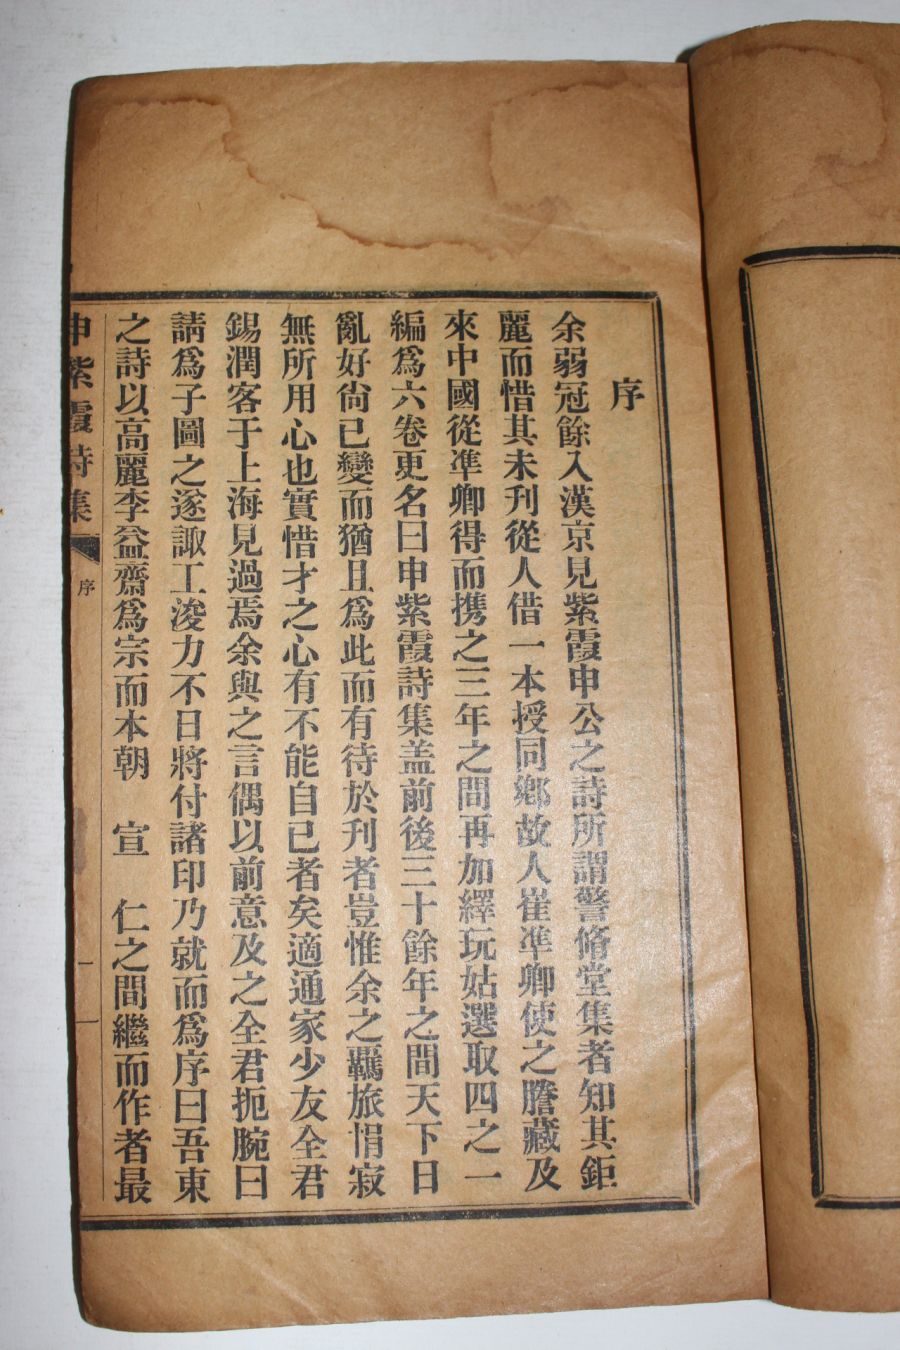 序
余弱冠餘入漢京見紫霞申公之詩所謂警脩堂集者知其鉅
麗而惜其未刊從人借一本授同鄉故人崔準卿使之謄藏及
來中國從準卿得而携之三年之間再加繹玩姑選取四之一
編爲六卷更名曰申紫霞詩集盖前後三十餘年之間天下日
亂好尙已變而猶且爲此而有待於刊者豈惟余之羈旅悁寂
無所用心也實惜才之心有不能自已者矣適通家少友全君
錫潤客于上海見過焉余與之言偶以前意及之全君扼腕曰
請爲子圖之遂諏工浚力不日將付諸印乃就而爲序曰吾東
之詩以高麗李益齋爲宗而本朝　宣　仁之間繼而作者最
申紫霞詩集
序
一